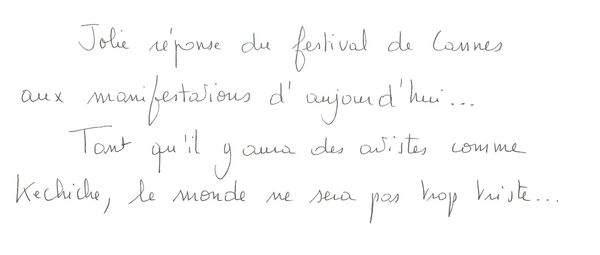 Jolie réponse du festival de Cannes
aux manifestations d'aujourd'hui...
Tant qu'il y aura des artistes comme
Kechiche, le monde ne sera pas trop triste...